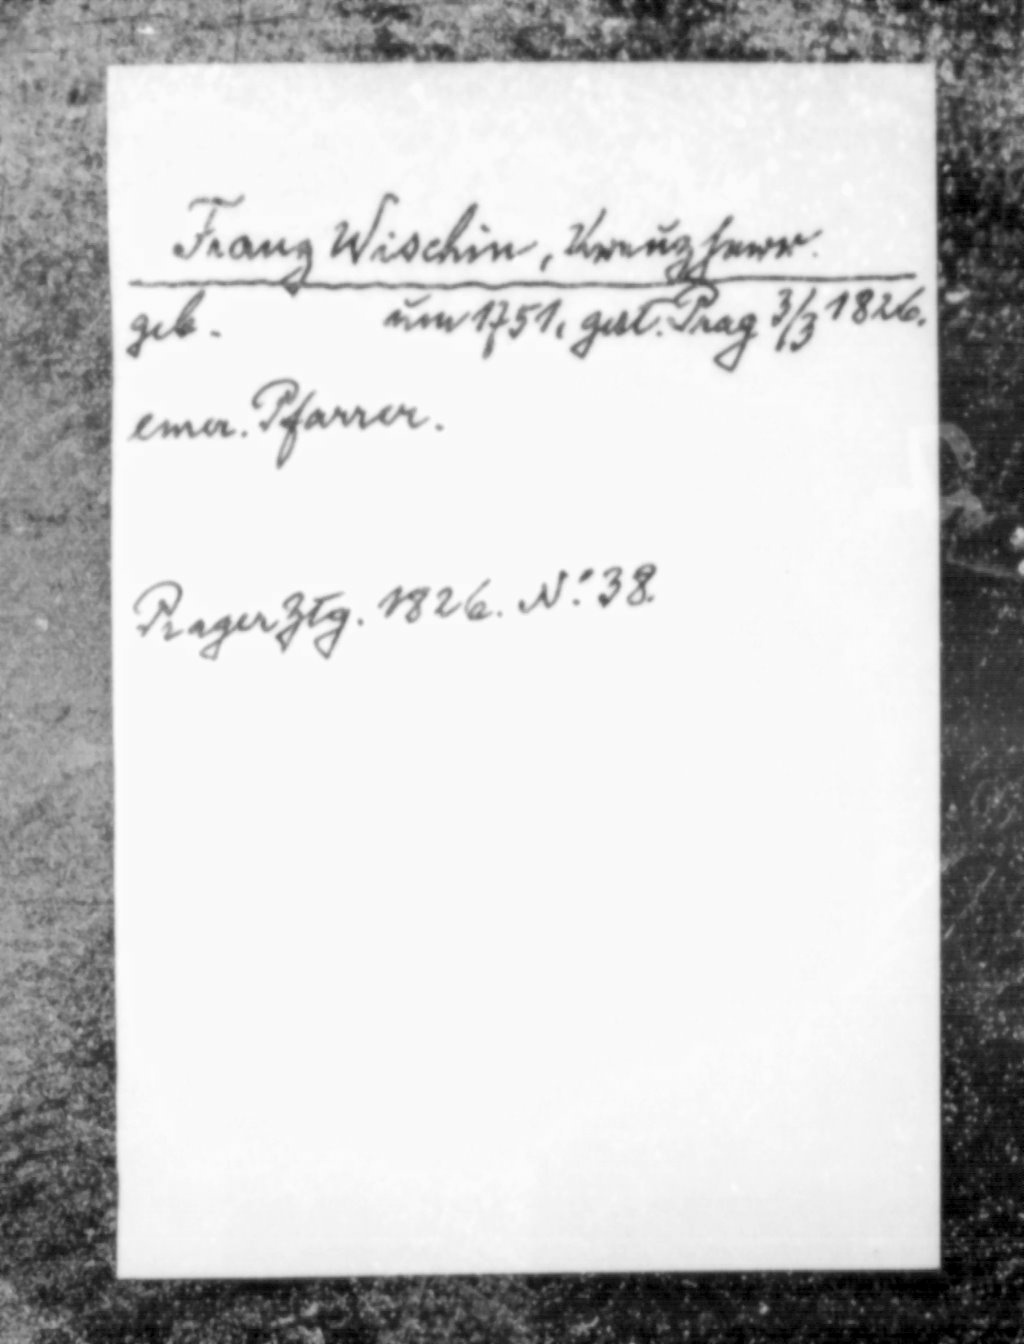 Franz Wischin, Kreuzherr.
geb. um 1751, gest. Prag 3/3 1826.
emer. Pfarrer.
Prager Ztg. 1826. No. 38.